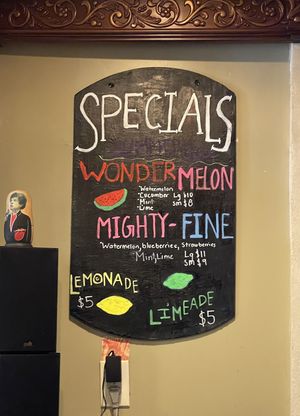 SPECIALS
WONDERMELON
Watermelon
Cucumber Lg $10
Mint Sm $8
Lime
MIGHTY-FINE
Watermelon, blueberries, Strawberries
Mint, Lime Lg $11
Sm $9
LEMONADE
$5
LIMEADE
$5